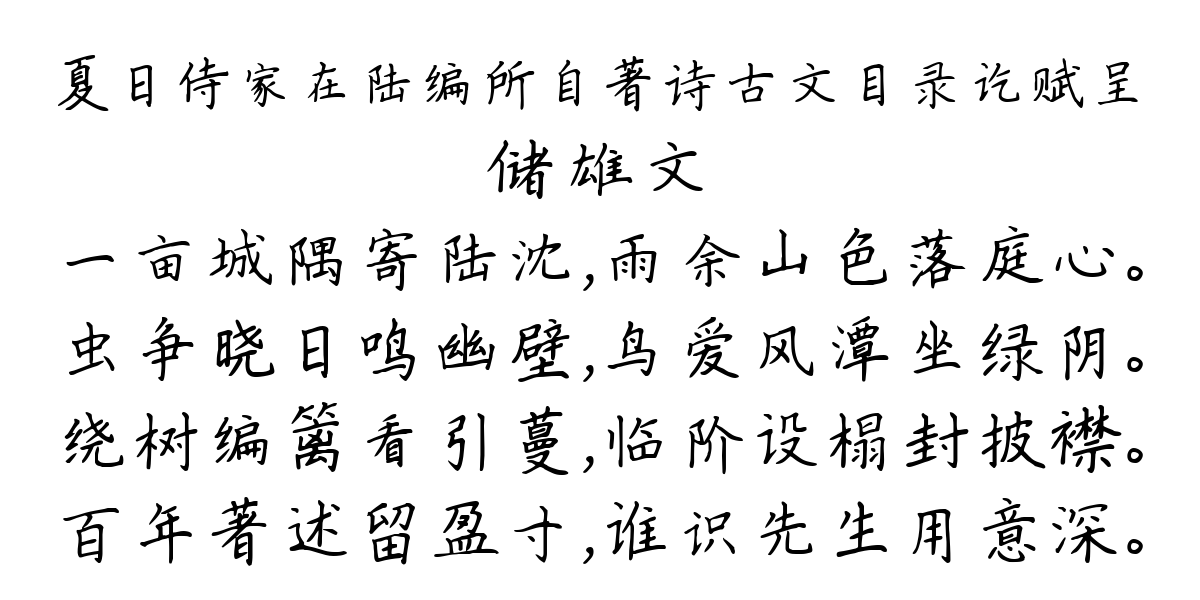 夏日侍家在陆编所自著诗古文目录讫赋呈
储雄文
一亩城隅寄陆沈,雨余山色落庭心。
虫争晓日鸣幽壁,鸟爱风潭坐绿阴。
绕树编篱看引蔓,临阶设榻封披襟。
百年著述留盈寸,谁识先生用意深。